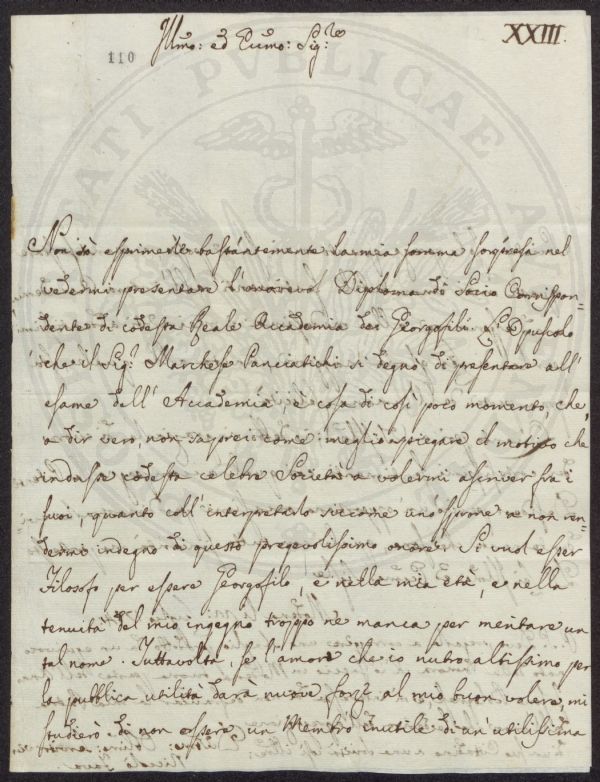 XXIII.
110
Illmo: ed Ecmo: Sig:re
Non sò esprimerle bastantemente la mia somma sorpresa nel
vedermi presentare l'onorevol Diploma di Socio Corrispon-
dente di codesta Reale Accademia dei Georgofili. L'Opuscolo
che il Sigr Marchese Panciatichi si degnò di presentare all'
esame dell'Accademia, è cosa di così poco momento, che,
a dir vero, non saprei come meglio spiegare il motivo che
indusse codesta celebre Società a volermi ascriver fra i
suoi, quanto coll'interpretarlo siccome uno sprone a non ren-
dermi indegno di questo pregevolissimo onore. Si vuol esser
Filosofo per essere Georgofilo, e nella mia età, e nella
tenuità del mio ingegno troppo ne manca per meritare un
tal nome. Tuttavolta, se l'amore che io nutro altissimo per
la pubblica utilità darà nuove forze al mio buon volere, mi
studierò di non essere un Membro inutile di un'utilissima
PUBLICAE